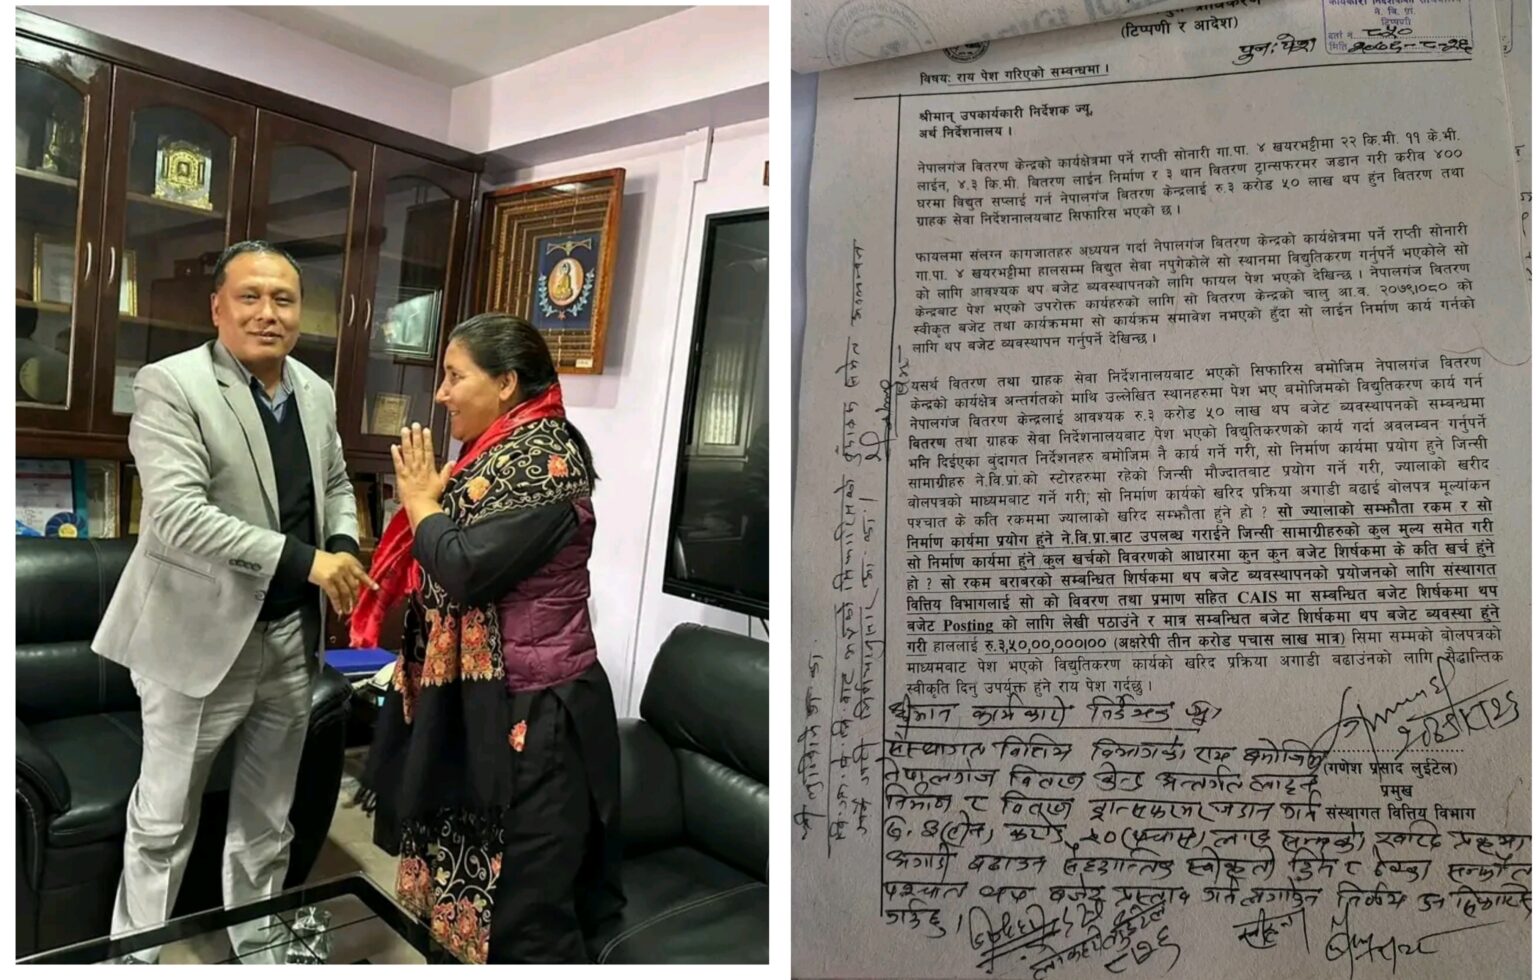 (टिप्पणी र आदेश)
पुन: पेश
ने. वि. प्रा.
टिप्पणी
दर्ता नं. ८५०
मिति
विषय: राय पेश गरिएको सम्बन्धमा ।
श्रीमान् उपकार्यकारी निर्देशक ज्यू,
अर्थ निर्देशनालय ।
नेपालगंज वितरण केन्द्रको कार्यक्षेत्रमा पर्ने राप्ती सोनारी गा.पा. ४ खयरभट्टीमा २२ कि.मी. ११ के.भी.
लाईन, ४.३ कि.मी. वितरण लाईन निर्माण र ३ थान वितरण ट्रान्सफरमर जडान गरी करीव ४००
घरमा विद्युत सप्लाई गर्न नेपालगंज वितरण केन्द्रलाई रु.३ करोड ५० लाख थप हुंन वितरण तथा
ग्राहक सेवा निर्देशनालयबाट सिफारिस भएको छ ।
फायलमा संलग्न कागजातहरु अध्ययन गर्दा नेपालगंज वितरण केन्द्रको कार्यक्षेत्रमा पर्ने राप्ती सोनारी
गा.पा. ४ खयरभट्टीमा हालसम्म विद्युत सेवा नपुगेकोले सो स्थानमा विद्युतिकरण गर्नुपर्ने भएकोले सो
को लागि आवश्यक थप बजेट ब्यवस्थापनको लागि फायल पेश भएको देखिन्छ । नेपालगंज वितरण
केन्द्रबाट पेश भएको उपरोक्त कार्यहरुको लागि सो वितरण केन्द्रको चालु आ.व. २०७९।०८० को
स्वीकृत बजेट तथा कार्यक्रममा सो कार्यक्रम समावेश नभएको हुंदा सो लाईन निर्माण कार्य गर्नको
लागि थप बजेट ब्यवस्थापन गर्नुपर्ने देखिन्छ ।
यसर्थ वितरण तथा ग्राहक सेवा निर्देशनालयबाट भएको सिफारिस बमोजिम नेपालगंज वितरण
केन्द्रको कार्यक्षेत्र अन्तर्गतको माथि उल्लेखित स्थानहरुमा पेश भए बमोजिमको विद्युतिकरण कार्य गर्न
नेपालगंज वितरण केन्द्रलाई आवश्यक रु.३ करोड ५० लाख थप बजेट ब्यवस्थापनको सम्बन्धमा
वितरण तथा ग्राहक सेवा निर्देशनालयबाट पेश भएको विद्युतिकरणको कार्य गर्दा अवलम्वन गर्नुपर्ने
भनि दिईएका बुंदागत निर्देशनहरु बमोजिम नै कार्य गर्ने गरी, सो निर्माण कार्यमा प्रयोग हुने जिन्सी
सामाग्रीहरु ने.वि.प्रा.को स्टोरहरुमा रहेको जिन्सी मौज्दातबाट प्रयोग गर्ने गरी, ज्यालाको खरीद
बोलपत्रको माध्यमबाट गर्ने गरी; सो निर्माण कार्यको खरिद प्रक्रिया अगाडी बढाई बोलपत्र मूल्यांकन
पश्चात के कति रकममा ज्यालाको खरिद सम्झौता हुंने हो ? सो ज्यालाको सम्झौता रकम र सो
निर्माण कार्यमा प्रयोग हुंने ने.वि.प्रा.बाट उपलब्ध गराईने जिन्सी सामाग्रीहरुको कुल मुल्य समेत गरी
सो निर्माण कार्यमा हुंने कुल खर्चको विवरणको आधारमा कुन कुन बजेट शिर्षकमा के कति खर्च हुंने
हो ? सो रकम बराबरको सम्बन्धित शिर्षकमा थप बजेट ब्यवस्थापनको प्रयोजनको लागि संस्थागत
वित्तिय विभागलाई सो को विवरण तथा प्रमाण सहित CAIS मा सम्बन्धित बजेट शिर्षकमा थप
बजेट Posting को लागि लेखी पठाउंने र मात्र सम्बन्धित बजेट शिर्षकमा थप बजेट ब्यवस्था हुंने
गरी हाललाई रु.३,५०,००,०००।०० (अक्षरेपी तीन करोड पचास लाख मात्र) सिमा सम्मको बोलपत्रको
माध्यमबाट पेश भएको विद्युतिकरण कार्यको खरिद प्रक्रिया अगाडी बढाउंनको लागि सैद्धान्तिक
स्वीकृति दिनु उपर्युक्त हुंने राय पेश गर्दछु ।
श्रीमान कार्यकारी निर्देशक ज्यू,
संस्थागत वित्तिय विभागको राय बमोजिम
(गणेश प्रसाद लुईटेल)
नेपालगंज वितरण केन्द्र अन्तर्गत लाइन
प्रमुख
निर्माण र वितरण ट्रान्सफरमर जडान गर्न
संस्थागत वित्तिय विभाग
रु. ३(तीन) करोड ५०(पचास) लाख सम्मको खरिद प्रक्रिया
अगाडी बढाउन सैद्धान्तिक स्वीकृती दिन र ठेक्का सम्झौता
पश्चात थप बजेट प्रस्ताव गर्न लगाउन निर्णय हुन सिफारिस
गर्दछु ।